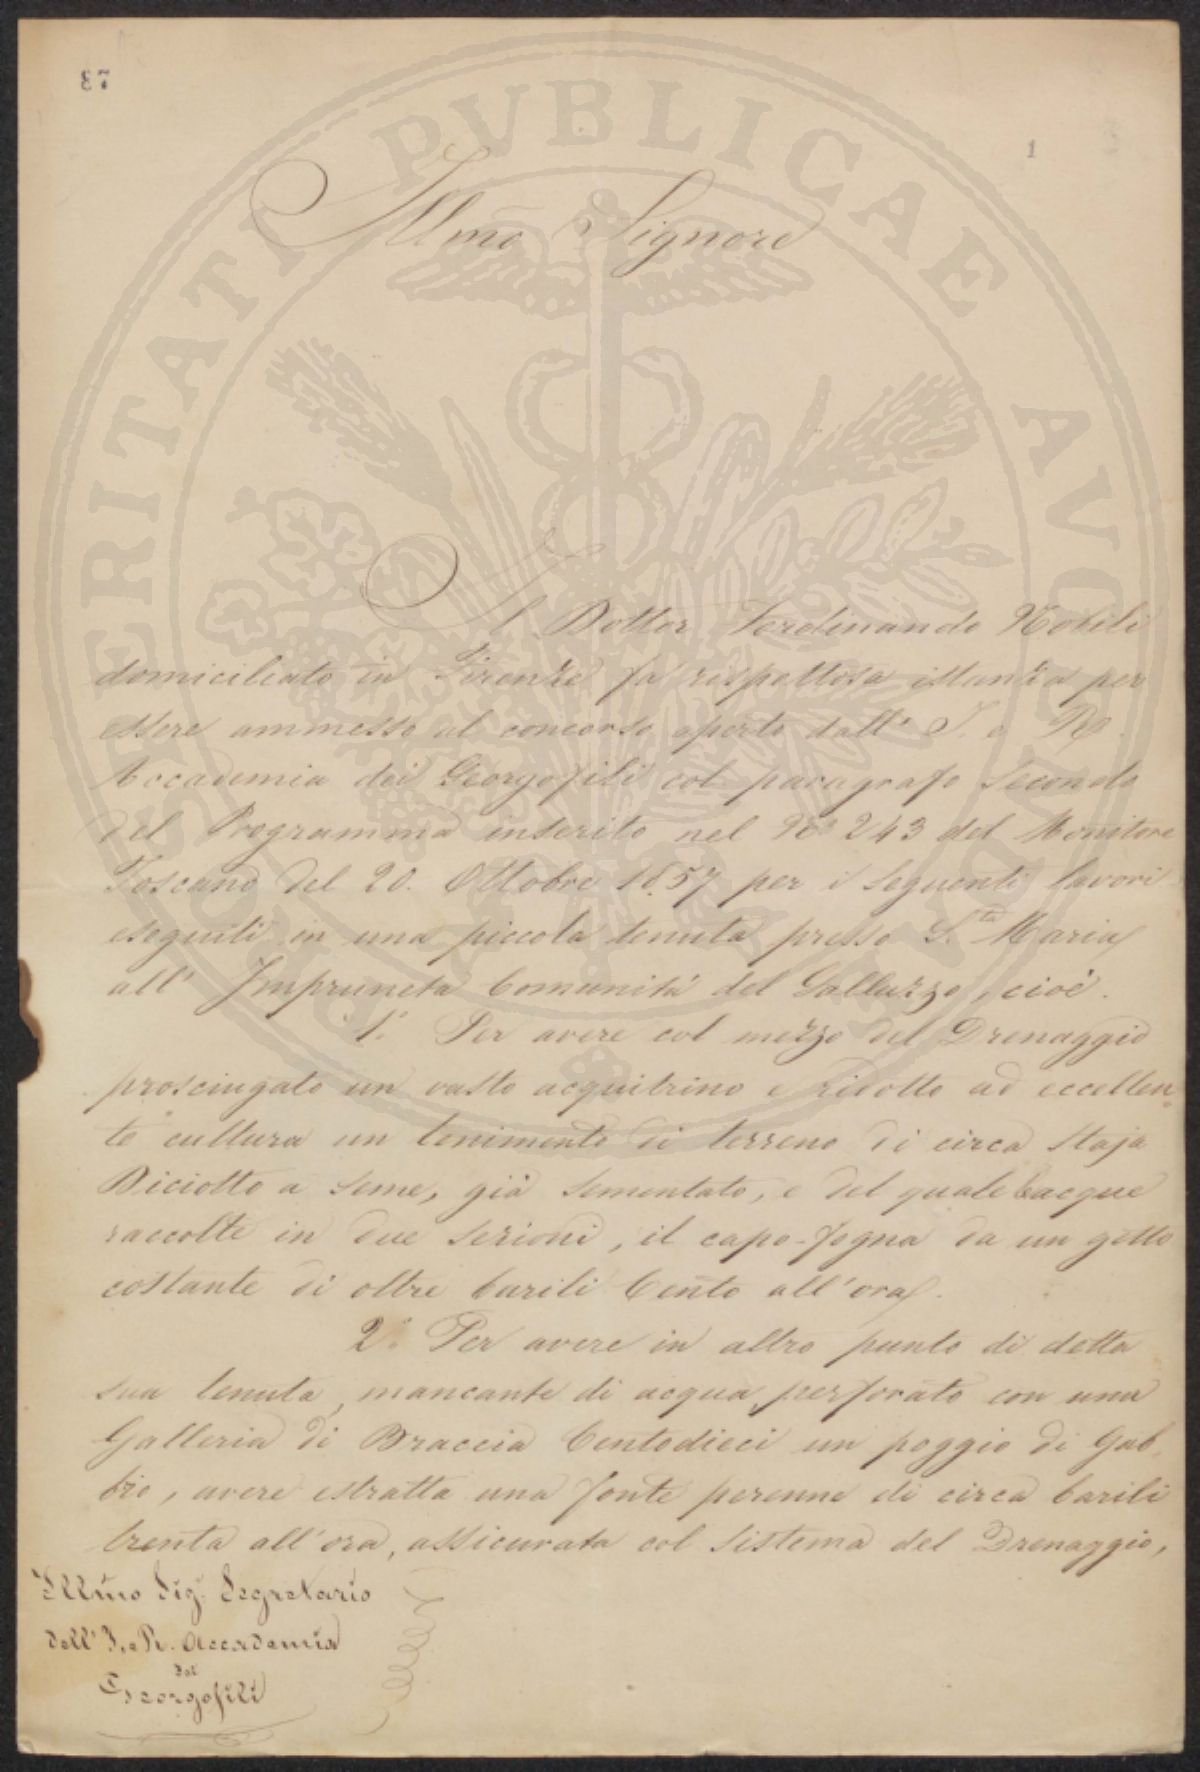 87
1
Illmo Signore
Il Dottor Ferdinando Nobili
domiciliato in Firenze fa rispettosa istanza per
essere ammesso al concorso aperto dall' I. e R.
Accademia dei Georgofili col paragrafo Secondo
del Programma inserito nel No 243 del Monitore
Toscano del 20. Ottobre 1857 per i seguenti lavori
eseguiti in una piccola tenuta presso S.ta Maria
all' Impruneta Comunità del Galluzzo, cioè.
1.° Per avere col mezzo del Drenaggio
prosciugato un vasto acquitrino e ridotto ad eccellen-
te cultura un tenimento di terreno di circa Staja
Diciotto a seme, già sementato, e del quale l'acque
raccolte in due sezioni, il capo-fogna da un getto
costante di oltre barili Cento all'ora.
2.° Per avere in altro punto di detta
sua tenuta, mancante di acqua, perforato con una
Galleria di Braccia Centodieci un poggio di Gab-
bro, avere estratta una fonte perenne di circa barili
trenta all'ora, assicurata col sistema del Drenaggio,
Illmo Sig. Segretario
dell'I. e R. Accademia
dei
Georgofili
PUBLICAE